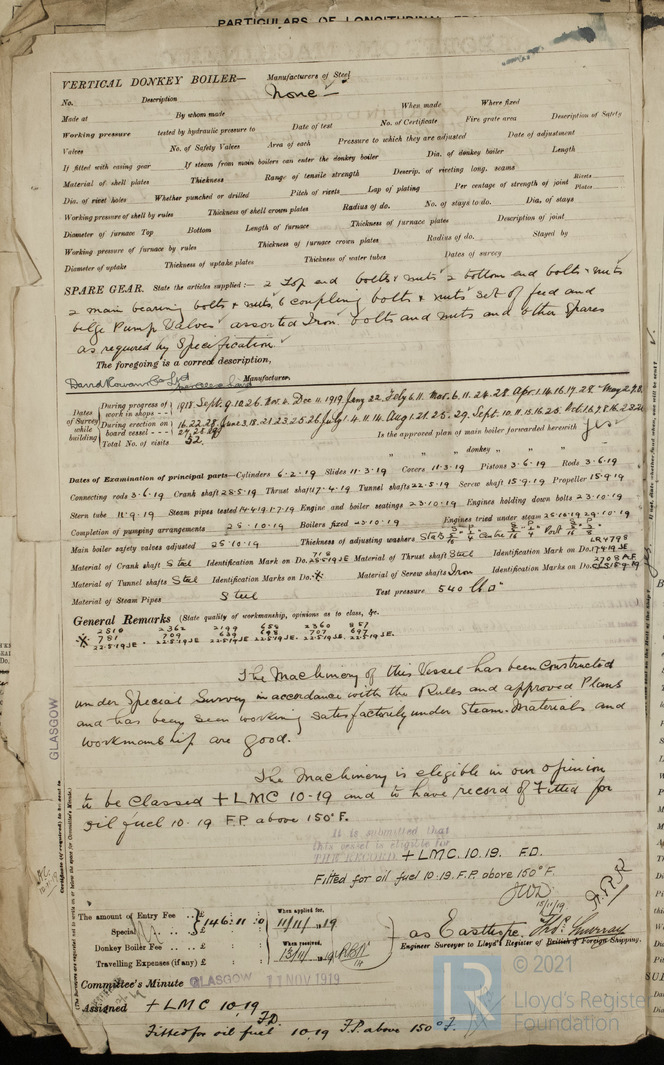 PARTICULARS OF LONGITUDINAL
VERTICAL DONKEY BOILER— Manufacturers of Steel
None —
No. Description When made Where fixed
Made at By whom made No. of Certificate Fire grate area Description of Safety
Working pressure tested by hydraulic pressure to Date of test
Valves No. of Safety Valves Area of each Pressure to which they are adjusted Date of adjustment
If fitted with casing gear If steam from main boilers can enter the donkey boiler Dia. of donkey boiler Length
Material of shell plates Thickness Range of tensile strength Descrip. of riveting long. seams
Dia. of rivet holes Whether punched or drilled Pitch of rivets Lap of plating Per centage of strength of joint Rivets Plates
Working pressure of shell by rules Thickness of shell crown plates Radius of do. No. of stays to do. Dia. of stays
Diameter of furnace Top Bottom Length of furnace Thickness of furnace plates Description of joint
Working pressure of furnace by rules Thickness of furnace crown plates Radius of do. Stayed by
Diameter of uptake Thickness of uptake plates Thickness of water tubes Dates of survey
SPARE GEAR. State the articles supplied:— 2 Top end bolts & nuts 2 bottom end bolts & nuts
2 main bearing bolts & nuts, 6 coupling bolts & nuts set of feed and
bilge Pump Valves assorted Iron. bolts and nuts and other spares
as required by Specification.
The foregoing is a correct description,
David Rowan & Co Ltd Manufacturer.
Dates of Survey while building
During progress of work in shops -- 1918 Sept. 9.10.26 Nov. 2. Dec 11. 1919 Jany 22. Feby 6.11. Mar. 6.11.24.28. Apr. 1.14.16.17.28. May 2.9.
During erection on board vessel --- 16.22.28. June 3.18.21.23.25.26 July 1.4.11.14. Aug 1.21.25.29. Sept. 10.11.15.16.25. Oct.
Total No. of visits 52. Is the approved plan of main boiler forwarded herewith Yes
" " " donkey " " "
Dates of Examination of principal parts—Cylinders 6-2-19 Slides 11-3-19 Covers 11-3-19 Pistons 3-6-19 Rods 3-6-19
Connecting rods 3-6-19 Crank shaft 28-5-19 Thrust shaft 17-4-19 Tunnel shafts 22-5-19 Screw shaft 15-9-19 Propeller 15-9-19
Stern tube 11-9-19 Steam pipes tested Engine and boiler seatings 23-10-19 Engines holding down bolts 23-10-19
Completion of pumping arrangements 25-10-19 Boilers fixed 25-10-19 Engines tried under steam 25-10-19 29-10-19
Main boiler safety valves adjusted 25-10-19 Thickness of adjusting washers
Material of Crank shaft Steel Identification Mark on Do. Material of Thrust shaft Steel Identification Mark on Do.
Material of Tunnel shafts Steel Identification Marks on Do. Material of Screw shafts Iron Identification Marks on Do.
Material of Steam Pipes Steel Test pressure 540 lb
General Remarks (State quality of workmanship, opinions as to class, &c.
2510 2362 2199 658 2360 857
781 709 639 698 707 697
22-5-19 JE. 22-5-19 JE. 22-5-19 JE. 22-5-19 JE. 22-5-19 JE. 22-5-19 JE.
The Machinery of this Vessel has been constructed
under Special Survey in accordance with the Rules and approved Plans
and has been seen working satisfactorily under Steam. Materials and
workmanship are good.
The Machinery is eligible in our opinion
to be classed + LMC 10-19 and to have record of Fitted for
oil fuel 10.19 F.P. above 150°F.
It is submitted that
this vessel is eligible for
THE RECORD + LMC. 10.19. F.D.
Fitted for oil fuel 10.19. F.P. above 150°F.
15/11/19
GLASGOW
Certificate (if required) to be sent to
(The Surveyors are requested not to write on or below the space for Committee's Minute.)
The amount of Entry Fee .. £ 146 : 11 : 0 When applied for, 11/11/1919
Special .. .. £ : :
Donkey Boiler Fee .. £ : : When received,
Travelling Expenses (if any) £ : :
as Easthope. Thos. Murray
Engineer Surveyor to Lloyd's Register of British & Foreign Shipping.
Committee's Minute GLASGOW 11 NOV 1919
Assigned + LMC 10-19
F.D.
Fitted for oil fuel 10.19 F.P. above 150°F.
© 2021
LR
Lloyd's Register
Foundation